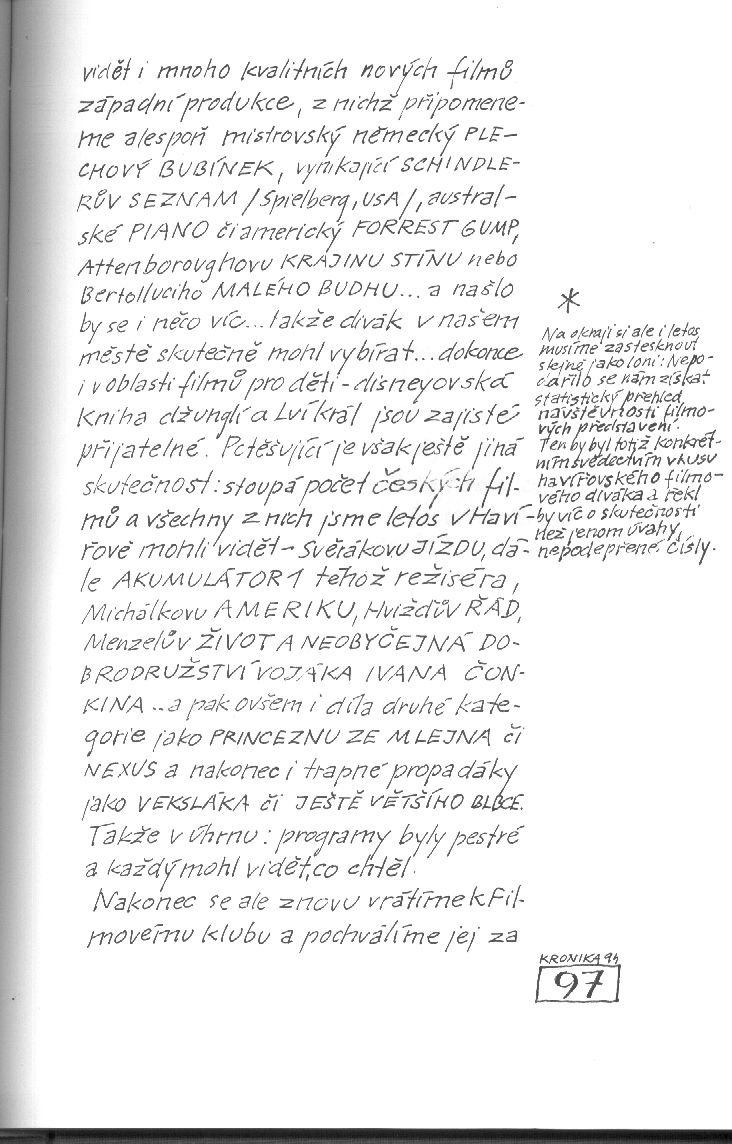 vidět i mnoho kvalitních nových filmů
západní produkce, z nichž připomene-
me alespoň mistrovský německý PLE-
CHOVÝ BUBÍNEK, vynikající SCHINDLE-
RŮV SEZNAM /Spielberg, USA/, austral-
ské PIANO či americký FORREST GUMP,
Attenboroughovu KRAJINU STÍNU nebo
Bertolluciho MALÉHO BUDHU... a našlo
by se i něco víc... takže divák v našem
městě skutečně mohl vybírat... dokonce
i v oblasti filmů pro děti - disneyovská
Kniha džunglí a Lví král jsou zajisté
přijatelné. Potěšující je však ještě jiná
skutečnost: stoupá počet českých fil-
mů a všechny z nich jsme letos v Haví-
řově mohli vidět - Svěrákovu JÍZDU, dá-
le AKUMULÁTOR 1 téhož režiséra,
Michálkovu AMERIKU, Hvížďův ŘÁD,
Menzelův ŽIVOT A NEOBYČEJNÁ DO-
BRODRUŽSTVÍ VOJÁKA IVANA ČON-
KINA .. a pak ovšem i díla druhé kate-
gorie jako PRINCEZNU ZE MLEJNA či
NEXUS a nakonec i trapné propadáky
jako VEKSLÁKA či JEŠTĚ VĚTŠÍHO BLBCE.
Takže v úhrnu: programy byly pestré
a každý mohl vidět, co chtěl.
Nakonec se ale znovu vrátíme k Fil-
movému klubu a pochválíme jej za
*
Na okraji si ale i letos
musíme zastesknout
stejně jako loni: Nepo-
dařilo se nám získat
statistický přehled
návštěvnosti filmo-
vých představení.
Ten by byl totiž konkrét-
ním svědectvím vkusu
havířovského filmo-
vého diváka a řekl
by víc o skutečnosti
než jenom úvahy,
nepodepřené čísly.
KRONIKA 94
97